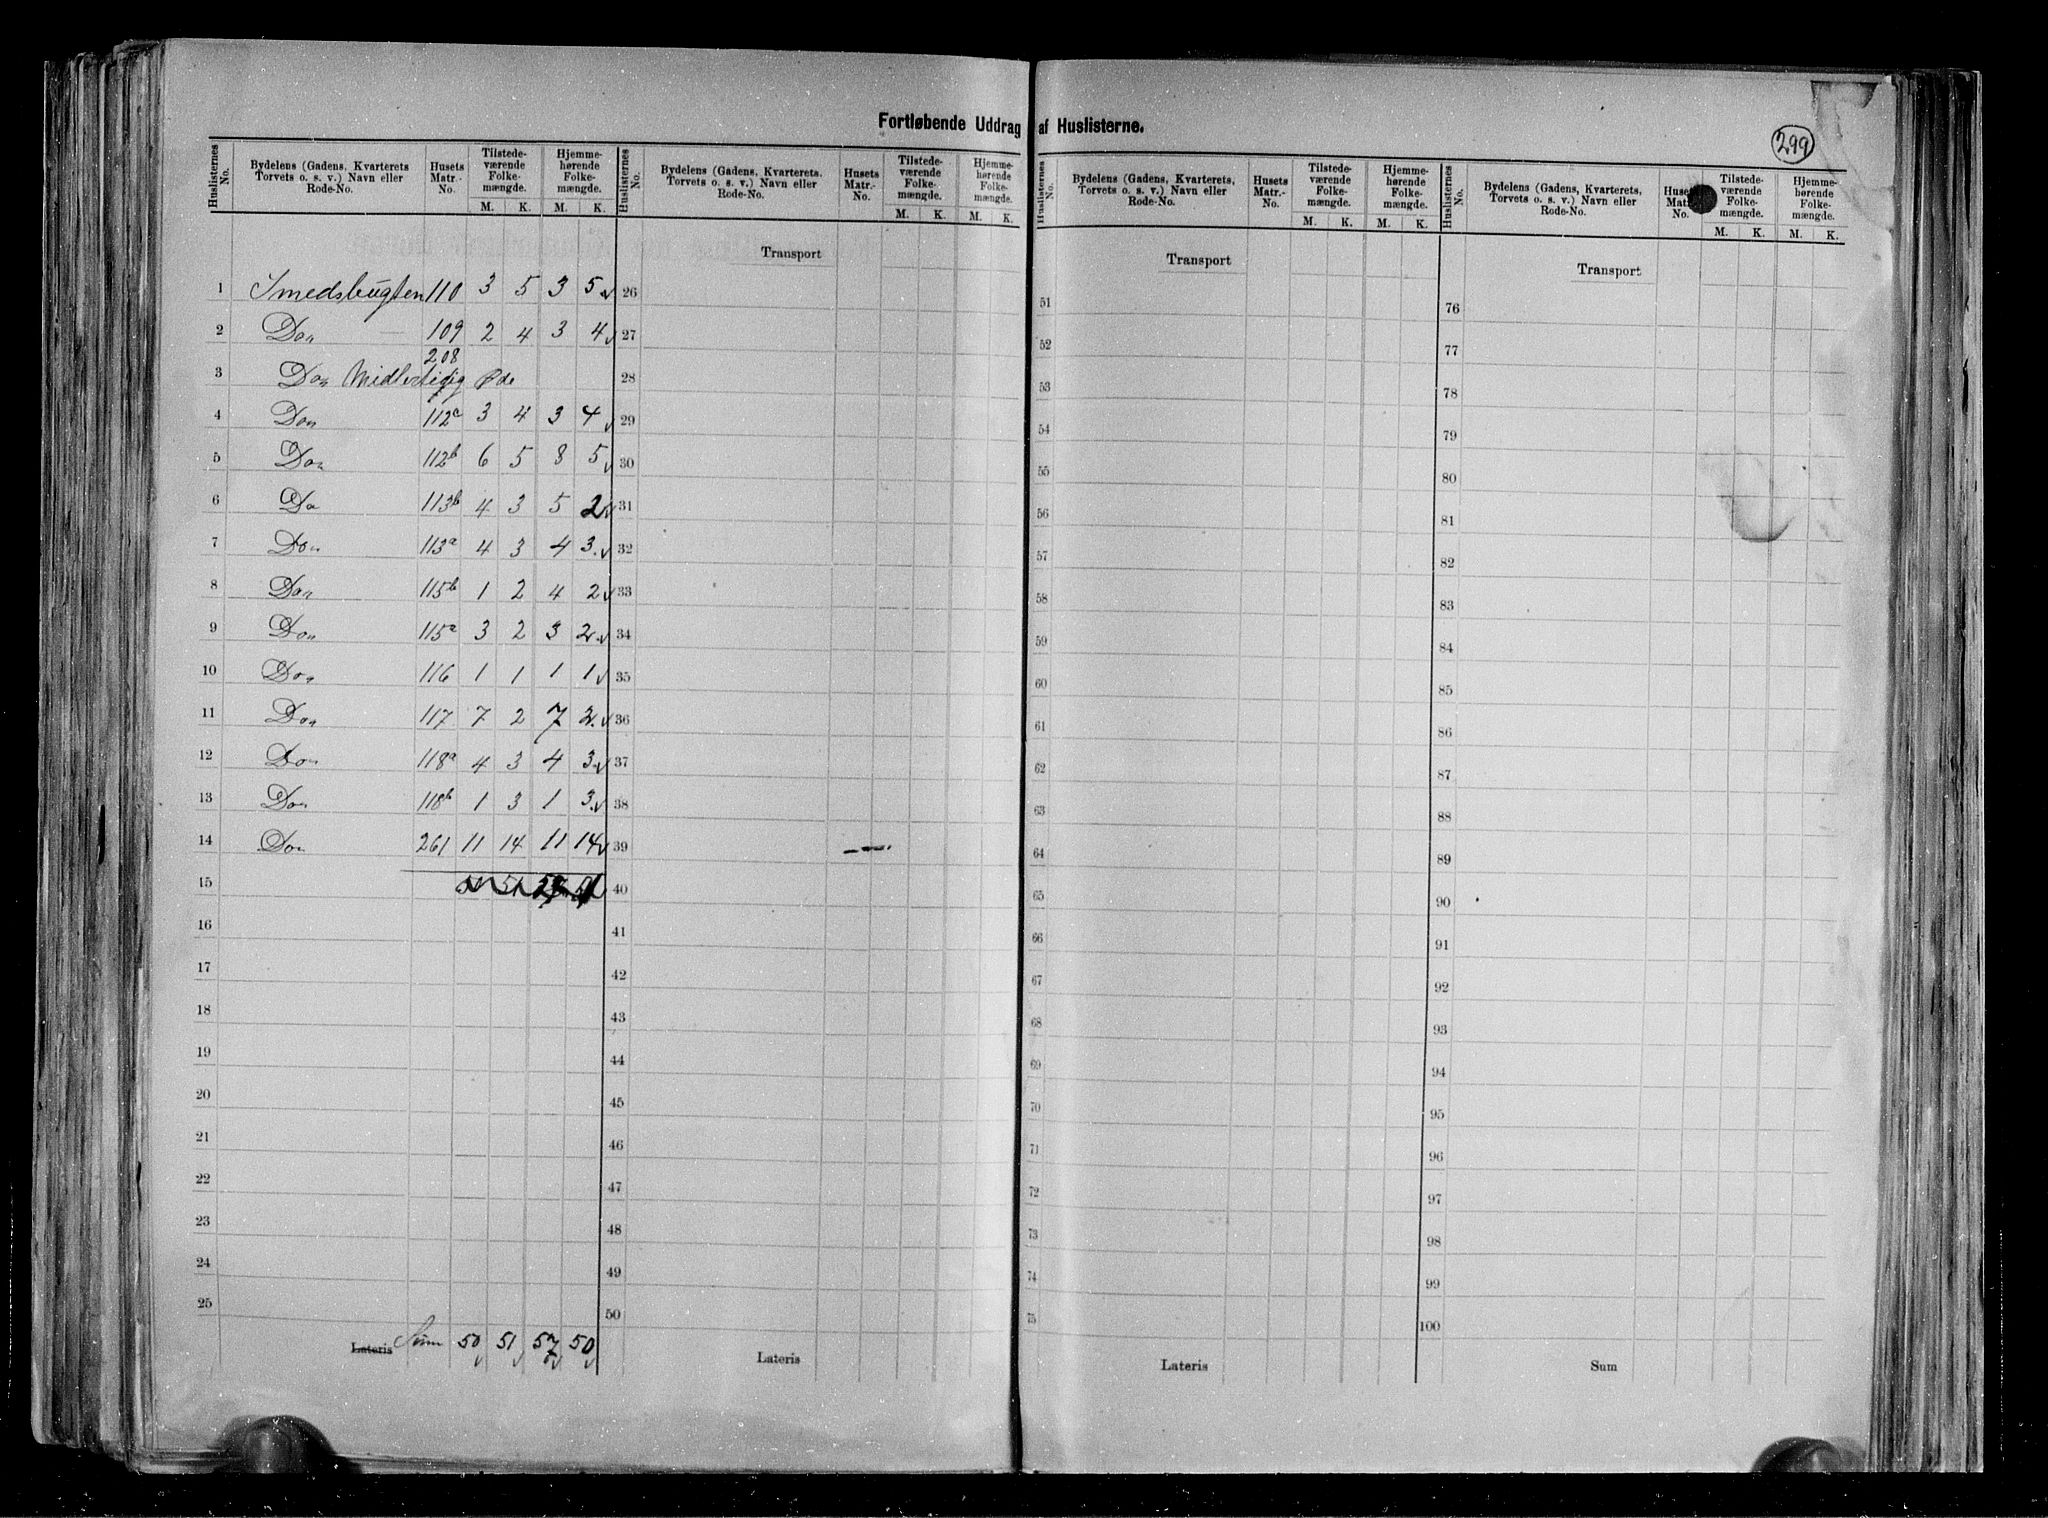 Fortløbende Uddrag af Huslisterne.
299
Huslisternes No. | Bydelens (Gadens, Kvarterets Torvets o. s. v.) Navn eller Rode-No. | Husets Matr.-No. | Tilstede-værende Folke-mængde. M. K. | Hjemme-hørende Folke-mængde. M. K.
1 Smedsbugten 110 3 5 3 5
2 Do 109 2 4 3 4
3 Do Midlertidig Øde 208
4 Do 112c 3 4 3 4
5 Do 112b 6 5 8 5
6 Do 113b 4 3 5 2
7 Do 113a 4 3 4 3
8 Do 115b 1 2 4 2
9 Do 115a 3 2 3 2
10 Do 116 1 1 1 1
11 Do 117 7 2 7 2
12 Do 118a 4 3 4 3
13 Do 118b 1 3 1 3
14 Do 261 11 14 11 14
15
16
17
18
19
20
21
22
23
24
25
Lateris Sum 50 51 57 50
Huslisternes No. | Bydelens (Gadens, Kvarterets, Torvets o. s. v.) Navn eller Rode-No. | Husets Matr.-No. | Tilstede-værende Folke-mængde. M. K. | Hjemme-hørende Folke-mængde. M. K.
Transport
26
27
28
29
30
31
32
33
34
35
36
37
38
39
40
41
42
43
44
45
46
47
48
49
50
Lateris
Huslisternes No. | Bydelens (Gadens, Kvarterets, Torvets o. s. v.) Navn eller Rode-No. | Husets Matr.-No. | Tilstede-værende Folke-mængde. M. K. | Hjemme-hørende Folke-mængde. M. K.
Transport
51
52
53
54
55
56
57
58
59
60
61
62
63
64
65
66
67
68
69
70
71
72
73
74
75
Lateris
Huslisternes No. | Bydelens (Gadens, Kvarterets, Torvets o. s. v.) Navn eller Rode-No. | Husets Matr. No. | Tilstede-værende Folke-mængde. M. K. | Hjemme-hørende Folke-mængde. M. K.
Transport
76
77
78
79
80
81
82
83
84
85
86
87
88
89
90
91
92
93
94
95
96
97
98
99
100
Sum